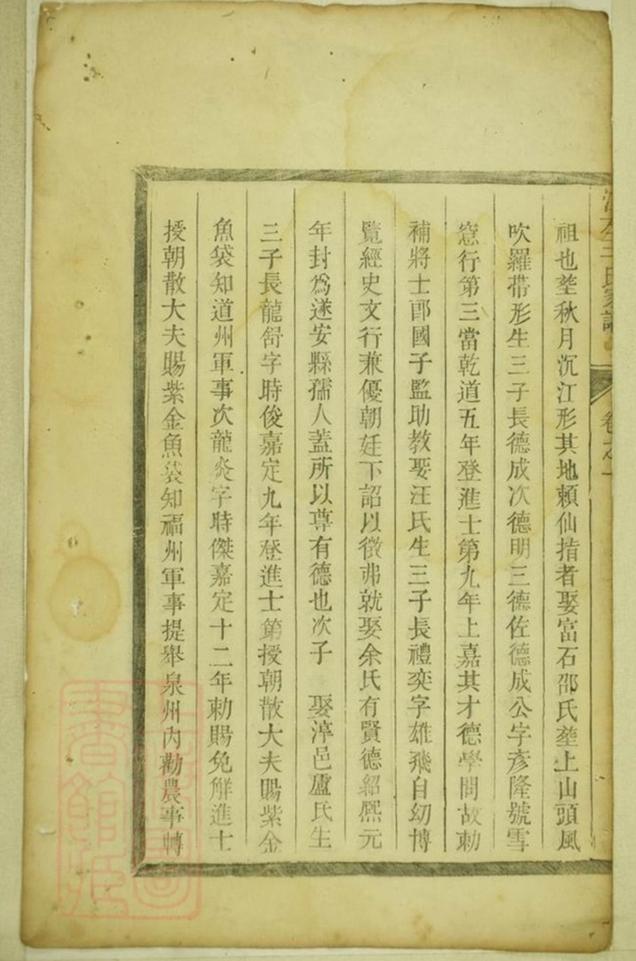 祖也塟秋月沉江形其地賴仙㨖者娶富石邵氏塟上山頭風
吹羅帶形生三子長德成次德明三德佐德成公字彥隆號雪
窓行第三當乾道五年登進士第九年上嘉其才德學問故勅
補將士郎國子監助教娶汪氏生三子長禮奕字雄飛自幼博
覽經史文行兼優朝廷下詔以徵弗就娶余氏有賢德紹熙元
年封爲遂安縣孺人蓋所以尊有德也次子　娶淳邑盧氏生
三子長龍舒字時俊嘉定九年登進士第授朝散大夫賜紫金
魚袋知道州軍事次龍炎字時傑嘉定十二年勅賜免觧進士
授朝散大夫賜紫金魚袋知福州軍事提舉泉州內勸農事轉
卷之一